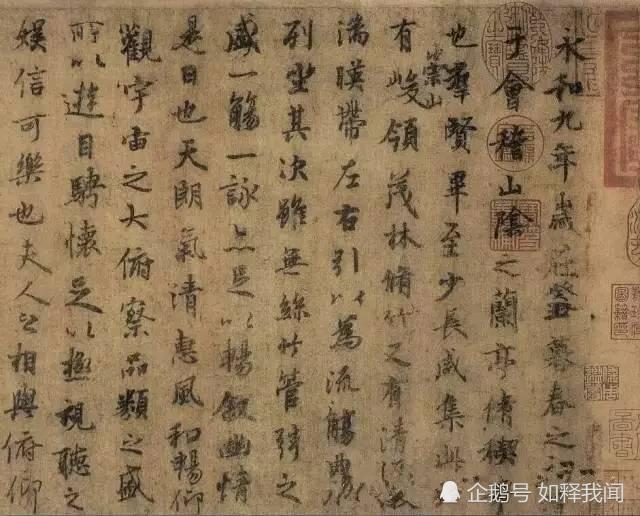 永和九年歲在癸丑暮春之初
于會稽山陰之蘭亭脩禊
也羣賢畢至少長咸集此
有崇山峻領茂林脩竹又有清流激
湍暎帶左右引以為流觴曲水
列坐其次雖無絲竹管弦之
盛一觴一詠亦足以暢敘幽情
是日也天朗氣清惠風和暢仰
觀宇宙之大俯察品類之盛
所以遊目騁懷足以極視聽之
娛信可樂也夫人之相與俯仰
企鹅号 如释我闻